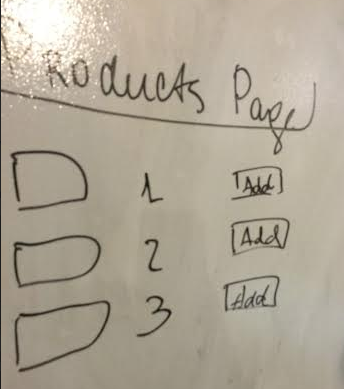 Products Page
1 Add
2 Add
3 Add